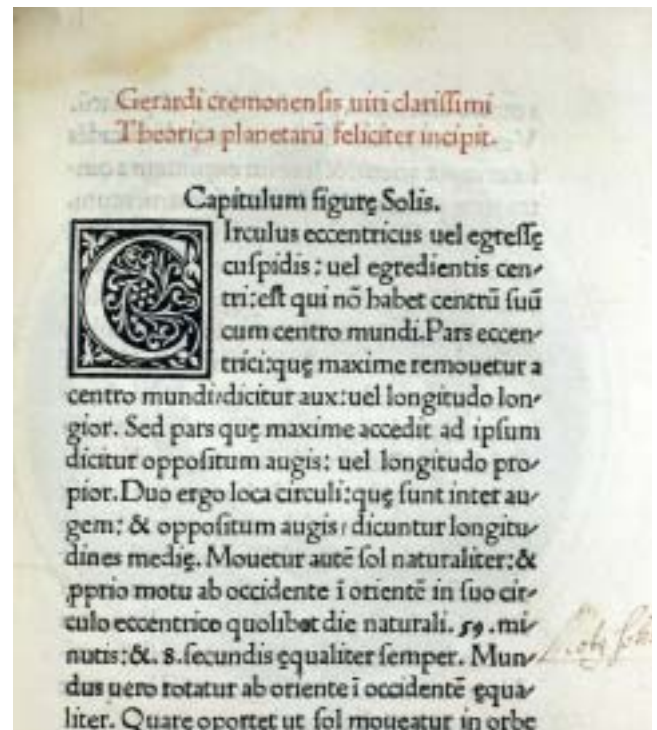 Gerardi cremonensis uiri clarissimi
Theorica planetarũ feliciter incipit.
Capitulum figurę Solis.
CIrculus eccentricus uel egressę
cuspidis: uel egredientis cen-
tri: est qui nõ habet centrũ suũ
cum centro mundi. Pars eccen-
trici: quę maxime remouetur a
centro mundi: dicitur aux: uel longitudo lon-
gior. Sed pars quę maxime accedit ad ipsum
dicitur oppositum augis: uel longitudo pro-
pior. Duo ergo loca circuli: quę sunt inter au-
gem: & oppositum augis: dicuntur longitu-
dines medię. Mouetur autẽ sol naturaliter: &
ꝓprio motu ab occidente ĩ orientẽ in suo cir-
culo eccentrico quolibet die naturali. 59. mi-
nutis: &. 8. secundis ęqualiter semper. Mun-
dus uero rotatur ab oriente ĩ occidentẽ ęqua-
liter. Quare oportet ut sol moueatur in orbe